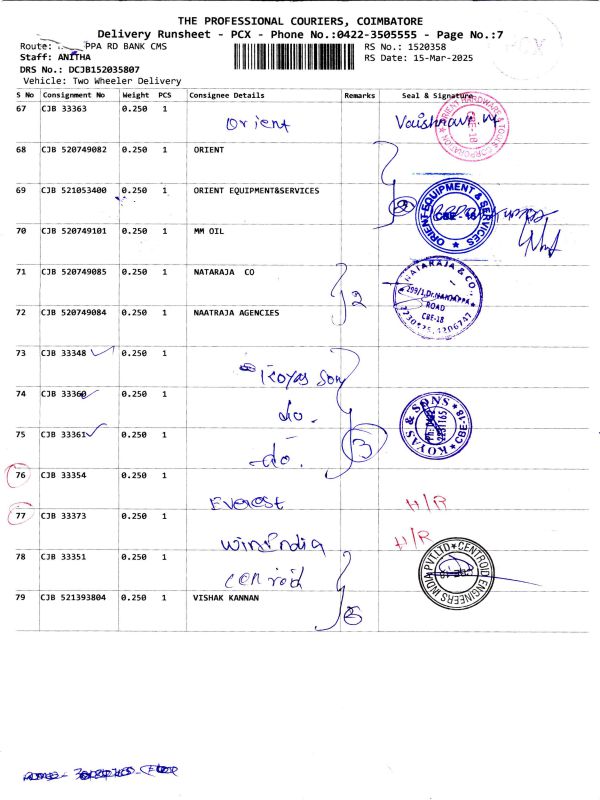 THE PROFESSIONAL COURIERS, COIMBATORE
Delivery Runsheet - PCX - Phone No.:0422-3505555 - Page No.:7
Route: PPA RD BANK CMS
RS No.: 1520358
Staff: ANITHA
RS Date: 15-Mar-2025
DRS No.: DCJB152035807
Vehicle: Two Wheeler Delivery
S No Consignment No Weight PCS Consignee Details Remarks Seal & Signature
67 CJB 33363 0.250 1 Orient Vaishnavi
ORIENT HARDWARE & TOOLS CORPORATION CBE-18
68 CJB 520749082 0.250 1 ORIENT
69 CJB 521053400 0.250 1 ORIENT EQUIPMENT&SERVICES
ORIENT EQUIPMENT & SERVICES CBE - 18
70 CJB 520749101 0.250 1 MM OIL
71 CJB 520749085 0.250 1 NATARAJA CO 2
NATARAJA & CO.,
299/1, Dr.NANJAPPA
ROAD
CBE-18
72 CJB 520749084 0.250 1 NAATRAJA AGENCIES
73 CJB 33348 0.250 1 Koyas Son
74 CJB 33360 0.250 1 do.
KOYAS & SONS CBE-18
2231165
75 CJB 33361 0.250 1 do. 3
76 CJB 33354 0.250 1 Everest H/R
77 CJB 33373 0.250 1 winindia H/R
78 CJB 33351 0.250 1 cenroid
CENTROID ENGINEERS INDIA PVT.LTD
79 CJB 521393804 0.250 1 VISHAK KANNAN